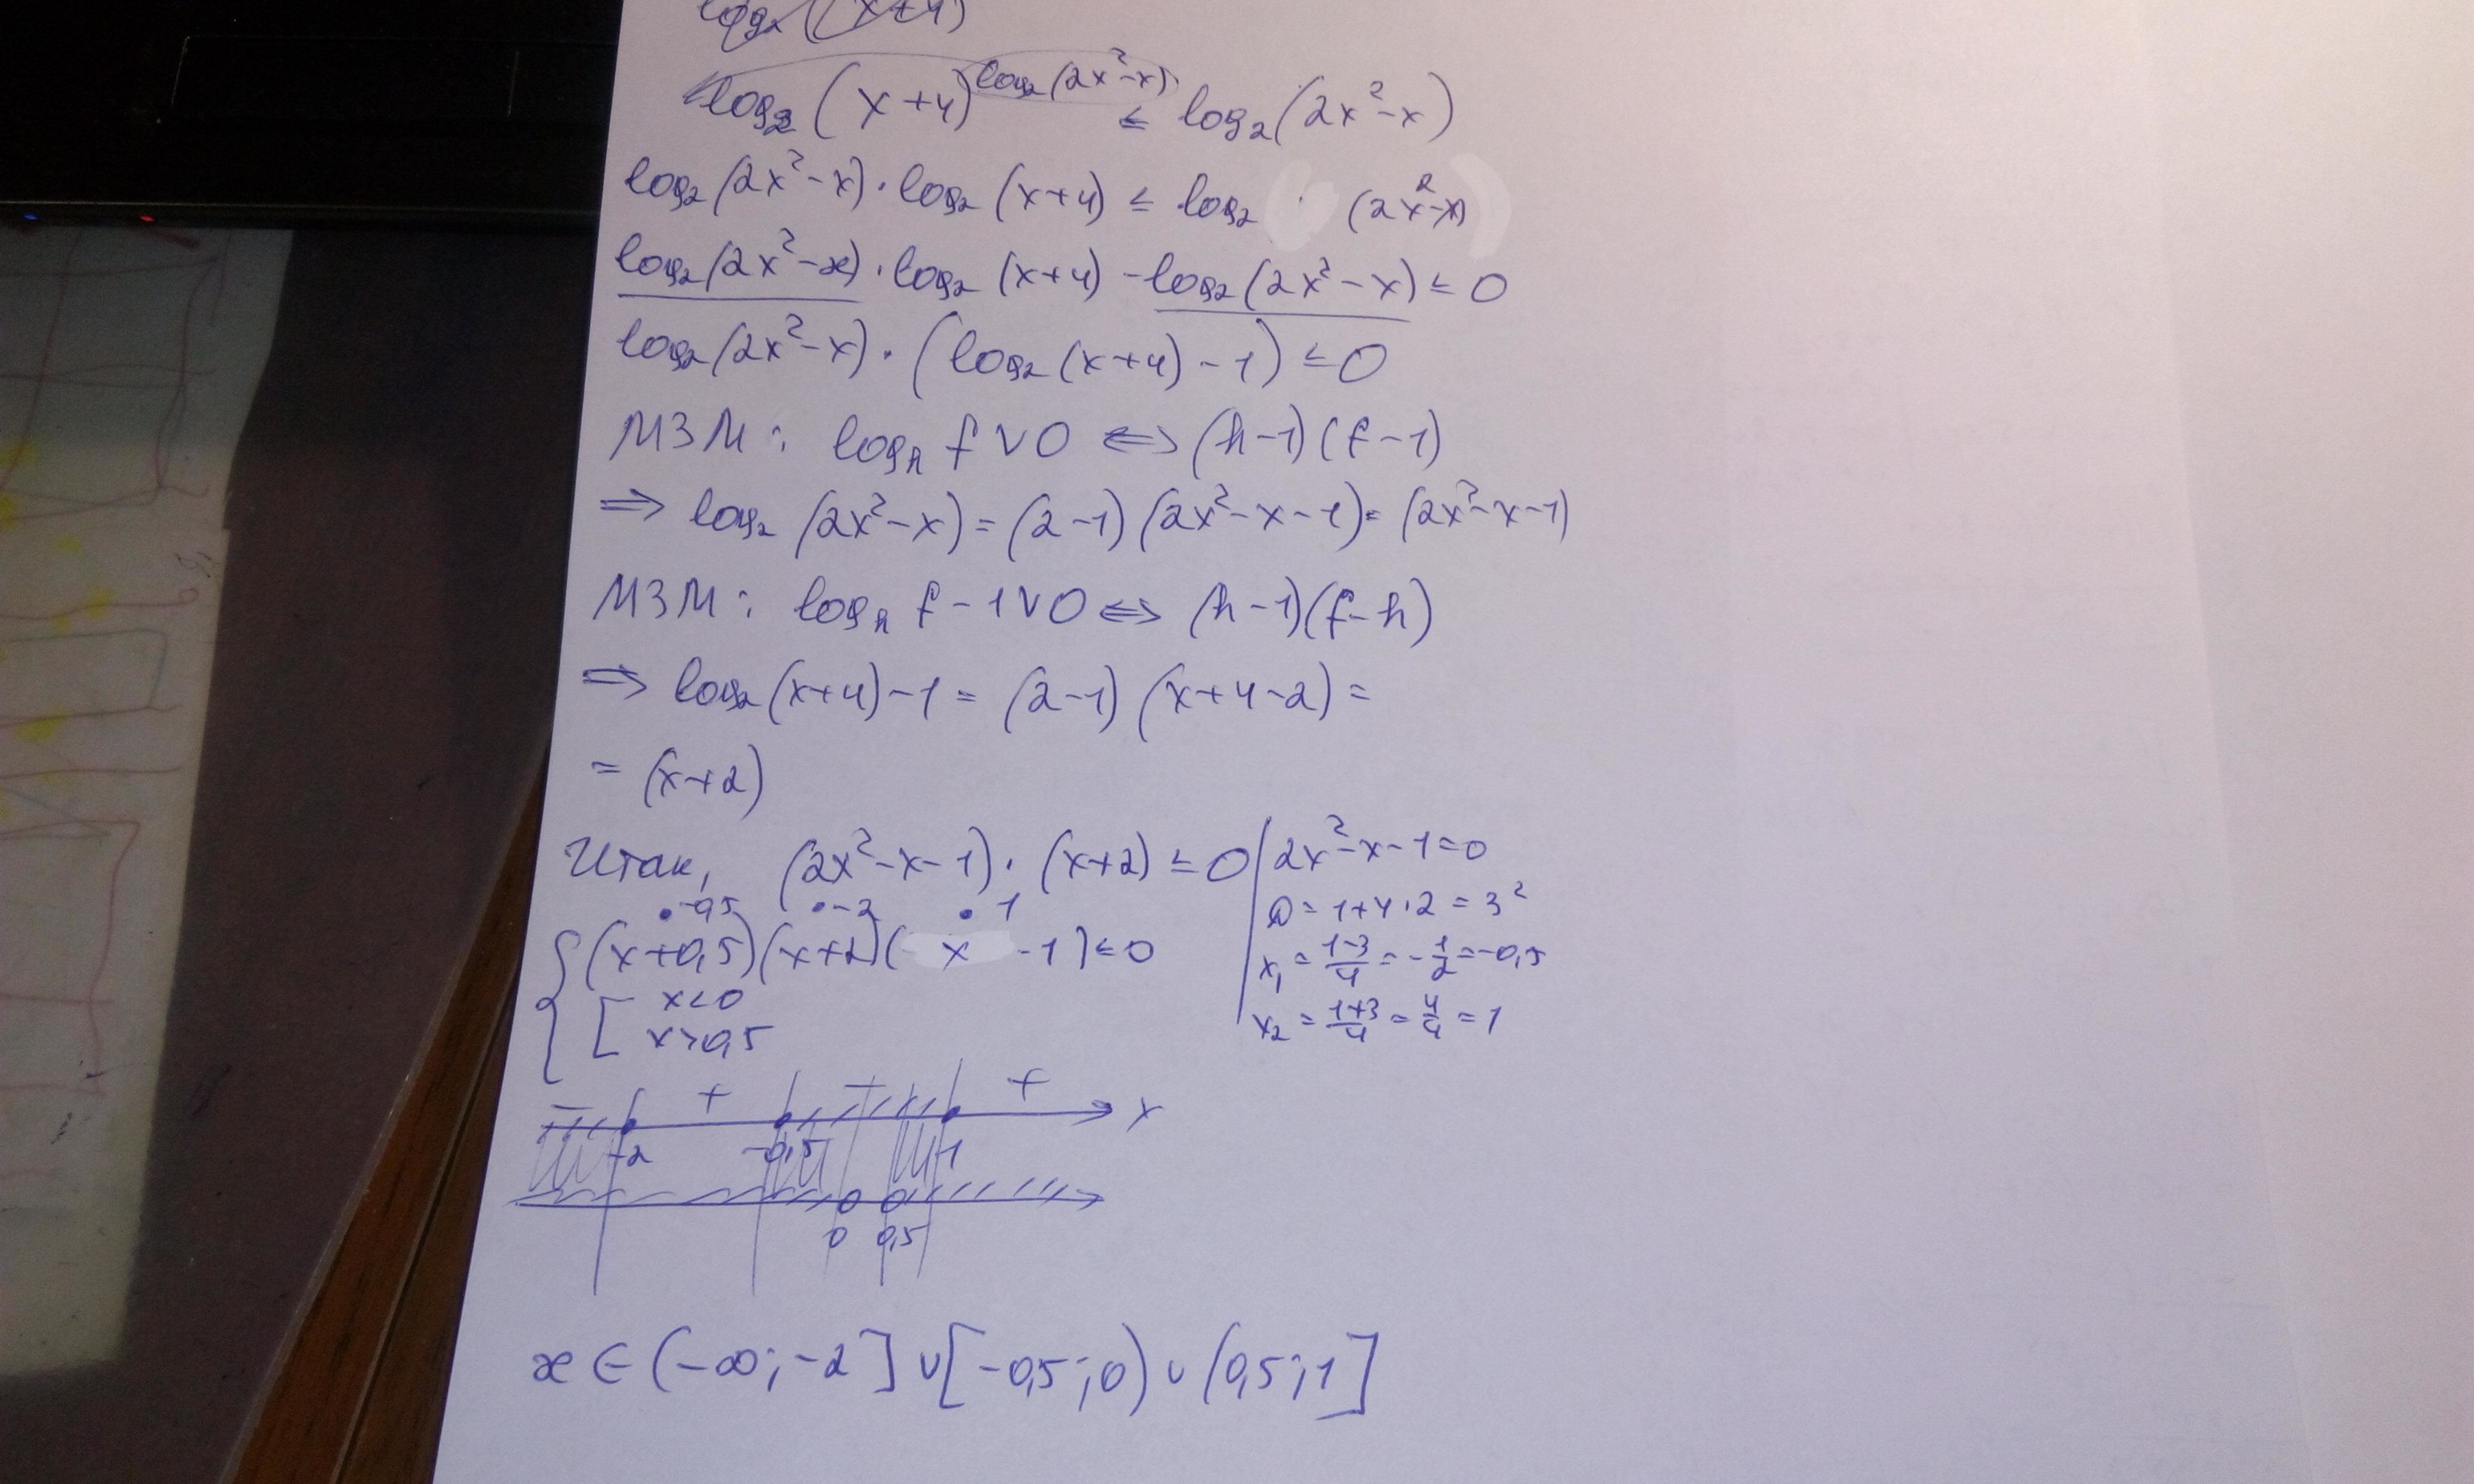 log₂ ((x+4)
log₂ (x+4)^log₂(2x²-x) ≤ log₂(2x²-x)
log₂(2x²-x)·log₂(x+4) ≤ log₂ (2x²-x)
log₂(2x²-x)·log₂(x+4) -log₂(2x²-x) ≤ 0
log₂(2x²-x)·(log₂(x+4)-1) ≤ 0
МЗМ: logₕ f ∨ 0 ⇔ (h-1)(f-1)
⇒ log₂ (2x²-x) = (2-1)(2x²-x-1) = (2x²-x-1)
МЗМ: logₕ f-1 ∨ 0 ⇔ (h-1)(f-h)
⇒ log₂(x+4)-1 = (2-1)(x+4-2) =
= (x+2)
Итак, (2x²-x-1)·(x+2) ≤ 0
•-0,5 •-2 •1
{(x+0,5)(x+2)(x-1) ≤ 0
[x<0
x>0,5
2x²-x-1=0
D = 1+4·2 = 3²
x₁ = (1-3)/4 = -1/2 = -0,5
x₂ = (1+3)/4 = 4/4 = 1
- + - + x
-2 -0,5 1
0 0,5
x ∈ (-∞;-2] ∪ [-0,5;0) ∪ (0,5;1]